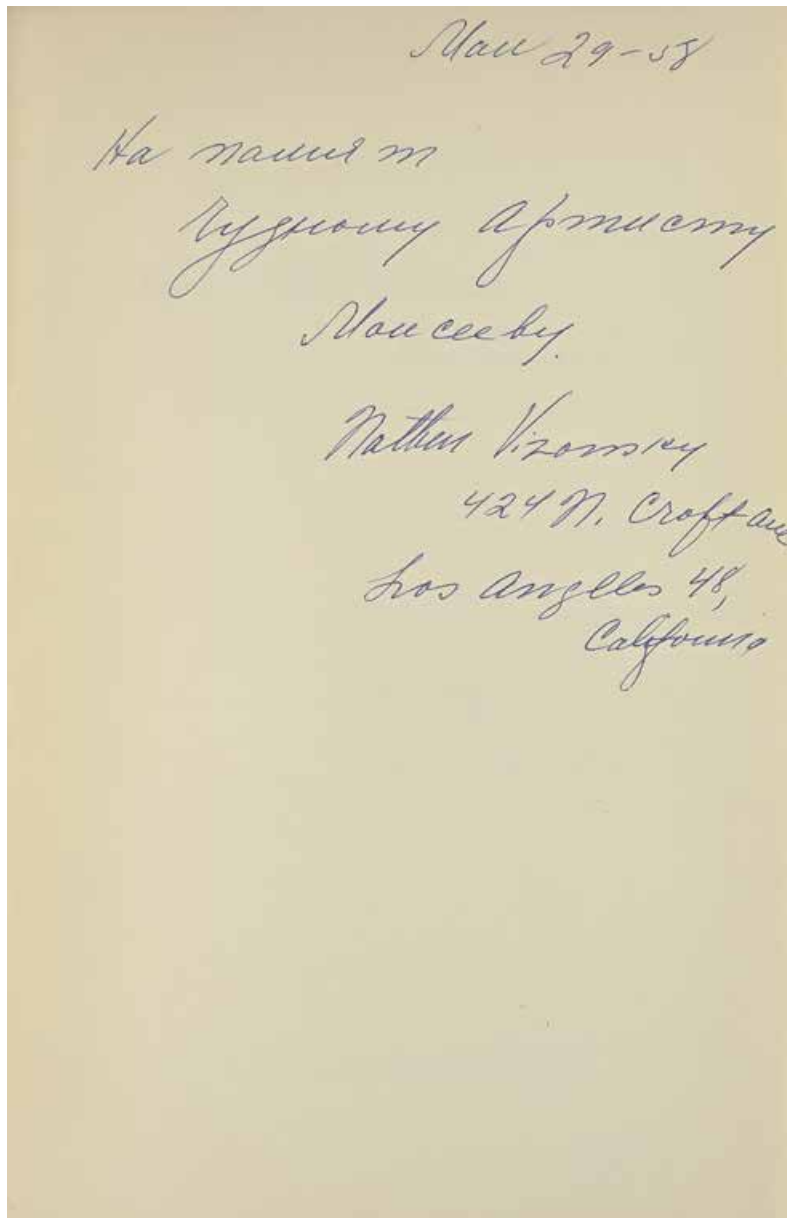 Маи 29-58
На памият
Чудному Артисту
Моисееву.
Nathen Vizonsky
424 N. Croft ave
Los Angeles 48,
California